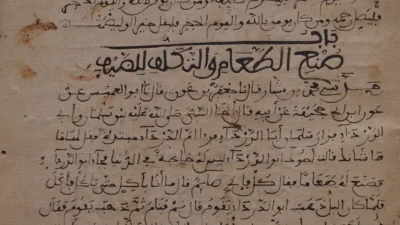 فليصل رحمه ومن كان يومن بالله واليوم الاخر فليقل خيرا او ليصمت
باب
صنع الطعام والتكلف للضيف
محمد بن بشار قال نا جعفر بن عون قال نا ابو العميس عن
عون بن ابي جحيفة عن ابيه قال اخى النبي صلى الله عليه وسلم بين سلمان وابي
الدرداء فزار سلمان ابا الدرداء فرا ام الدرداء متبذلة فقال لها ما
ما شانك قالت اخوك ابو الدرداء ليس له حاجة في الدنيا فجا ابو الدرداء
فصنع له طعاما فقال كل فاني صائم قال ما انا باكل حتى تاكل فاكل
فلما كان اليل ذهب ابو الدرداء يقوم قال نم فنام ثم ذهب يقوم فقال